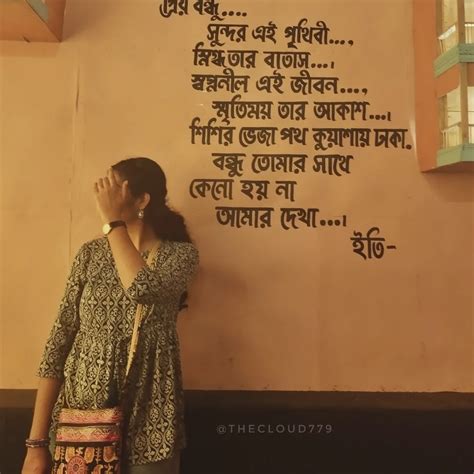 প্রিয় বন্ধু....
সুন্দর এই পৃথিবী...,
স্নিগ্ধ তার বাতাস...।
স্বপ্ননীল এই জীবন...,
স্মৃতিময় তার আকাশ...।
শিশির ভেজা পথ কুয়াশায় ঢাকা.
বন্ধু তোমার সাথে
কেনো হয় না
আমার দেখা...।
ইতি-
@THECLOUD779